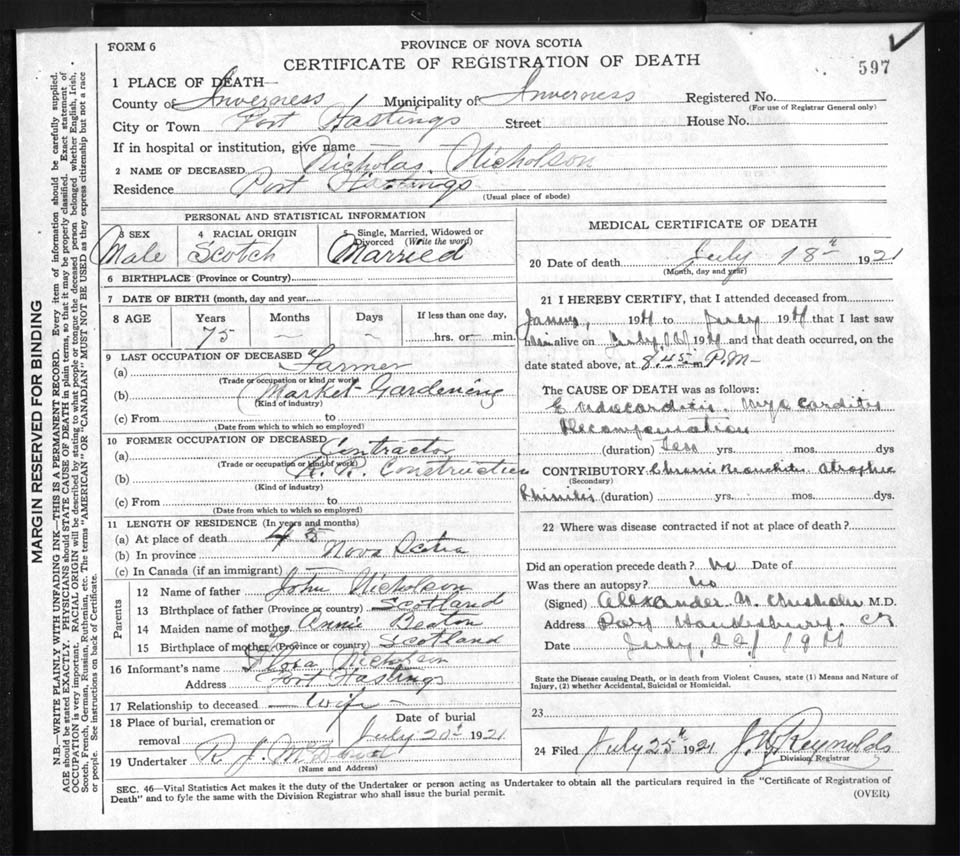 FORM 6
PROVINCE OF NOVA SCOTIA
CERTIFICATE OF REGISTRATION OF DEATH
597
1 PLACE OF DEATH—
County of Inverness Municipality of Inverness Registered No.
(For use of Registrar General only)
City or Town Port Hastings Street House No.
If in hospital or institution, give name
2 NAME OF DECEASED Nicholas Nicholson
Residence Port Hastings
(Usual place of abode)
PERSONAL AND STATISTICAL INFORMATION
3 SEX Male
4 RACIAL ORIGIN Scotch
5 Single, Married, Widowed or Divorced (Write the word) Married
6 BIRTHPLACE (Province or Country)
7 DATE OF BIRTH (month, day and year
8 AGE Years Months Days If less than one day,
75 — — hrs. or min.
9 LAST OCCUPATION OF DECEASED
(a) Farmer
(Trade or occupation or kind or work)
(b) Market Gardening
(Kind of industry)
(c) From to
(Date from which to which so employed)
10 FORMER OCCUPATION OF DECEASED
(a) Contractor
(Trade or occupation or kind of work)
(b) R. R. Construction
(Kind of industry)
(c) From to
(Date from which to which so employed)
11 LENGTH OF RESIDENCE (In years and months)
(a) At place of death 45
(b) In province Nova Scotia
(c) In Canada (if an immigrant)
Parents
12 Name of father John Nicholson
13 Birthplace of father (Province or country) Scotland
14 Maiden name of mother Annie Beaton
15 Birthplace of mother (Province or country) Scotland
16 Informant's name Flora Nicholson
Address Port Hastings
17 Relationship to deceased wife
18 Place of burial, cremation or removal
Date of burial July 20th 1921
19 Undertaker R. J.
(Name and Address)
MEDICAL CERTIFICATE OF DEATH
20 Date of death July 18th 1921
(Month, day and year)
21 I HEREBY CERTIFY, that I attended deceased from
1921 to July 1921 that I last saw
him alive on July 1921 and that death occurred, on the
date stated above, at 8.45 P.M—
The CAUSE OF DEATH was as follows:
Endocarditis. Myocarditis
Decompensation
(duration) Ten yrs. mos. dys
CONTRIBUTORY Chronic Bronchitis Atrophic
(Secondary)
Rhinitis (duration) yrs. mos. dys.
22 Where was disease contracted if not at place of death?
Did an operation precede death? No Date of
Was there an autopsy? No
(Signed) Alexander Chisholm M.D.
Address Port Hawkesbury. CB
Date July, 22/1921
State the Disease causing Death, or in death from Violent Causes, state (1) Means and Nature of
Injury, (2) whether Accidental, Suicidal or Homicidal.
23
24 Filed July 25th 1921 Reynolds
Division Registrar
SEC. 46—Vital Statistics Act makes it the duty of the Undertaker or person acting as Undertaker to obtain all the particulars required in the "Certificate of Registration of
Death" and to fyle the same with the Division Registrar who shall issue the burial permit.
(OVER)
MARGIN RESERVED FOR BINDING
N.B.—WRITE PLAINLY WITH UNFADING INK—THIS IS A PERMANENT RECORD. Every item of information should be carefully supplied.
AGE should be stated EXACTLY. PHYSICIANS should STATE CAUSE OF DEATH in plain terms, so that it may be properly classified. Exact statement of
OCCUPATION is very important. RACIAL ORIGIN will be described by stating to what people or tongue the deceased person belonged whether English, Irish,
Scotch, French, German, Russian, Ruthenian, etc. The terms "AMERICAN" OR "CANADIAN" MUST NOT BE USED as they express citizenship but not a race
or people. See instructions on back of Certificate.